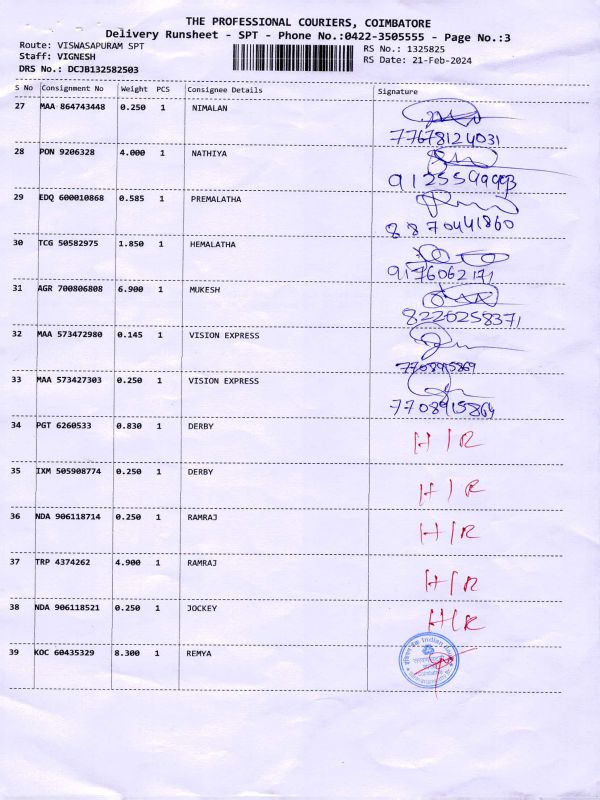 THE PROFESSIONAL COURIERS, COIMBATORE
Delivery Runsheet - SPT - Phone No.:0422-3505555 - Page No.:3
Route: VISWASAPURAM SPT
RS No.: 1325825
Staff: VIGNESH
RS Date: 21-Feb-2024
DRS No.: DCJB132582503
S No Consignment No Weight PCS Consignee Details Signature
27 MAA 864743448 0.250 1 NIMALAN
77678124031
28 PON 9206328 4.000 1 NATHIYA
29 EDQ 600010868 0.585 1 PREMALATHA
8870441860
30 TCG 50582975 1.850 1 HEMALATHA
9176062171
31 AGR 700806808 6.900 1 MUKESH
8220258371
32 MAA 573472980 0.145 1 VISION EXPRESS
7708915869
33 MAA 573427303 0.250 1 VISION EXPRESS
7708915869
34 PGT 6260533 0.830 1 DERBY H/R
35 IXM 505908774 0.250 1 DERBY H/R
36 NDA 906118714 0.250 1 RAMRAJ H/R
37 TRP 4374262 4.900 1 RAMRAJ H/R
38 NDA 906118521 0.250 1 JOCKEY H/R
39 KOC 60435329 8.300 1 REMYA
Indian